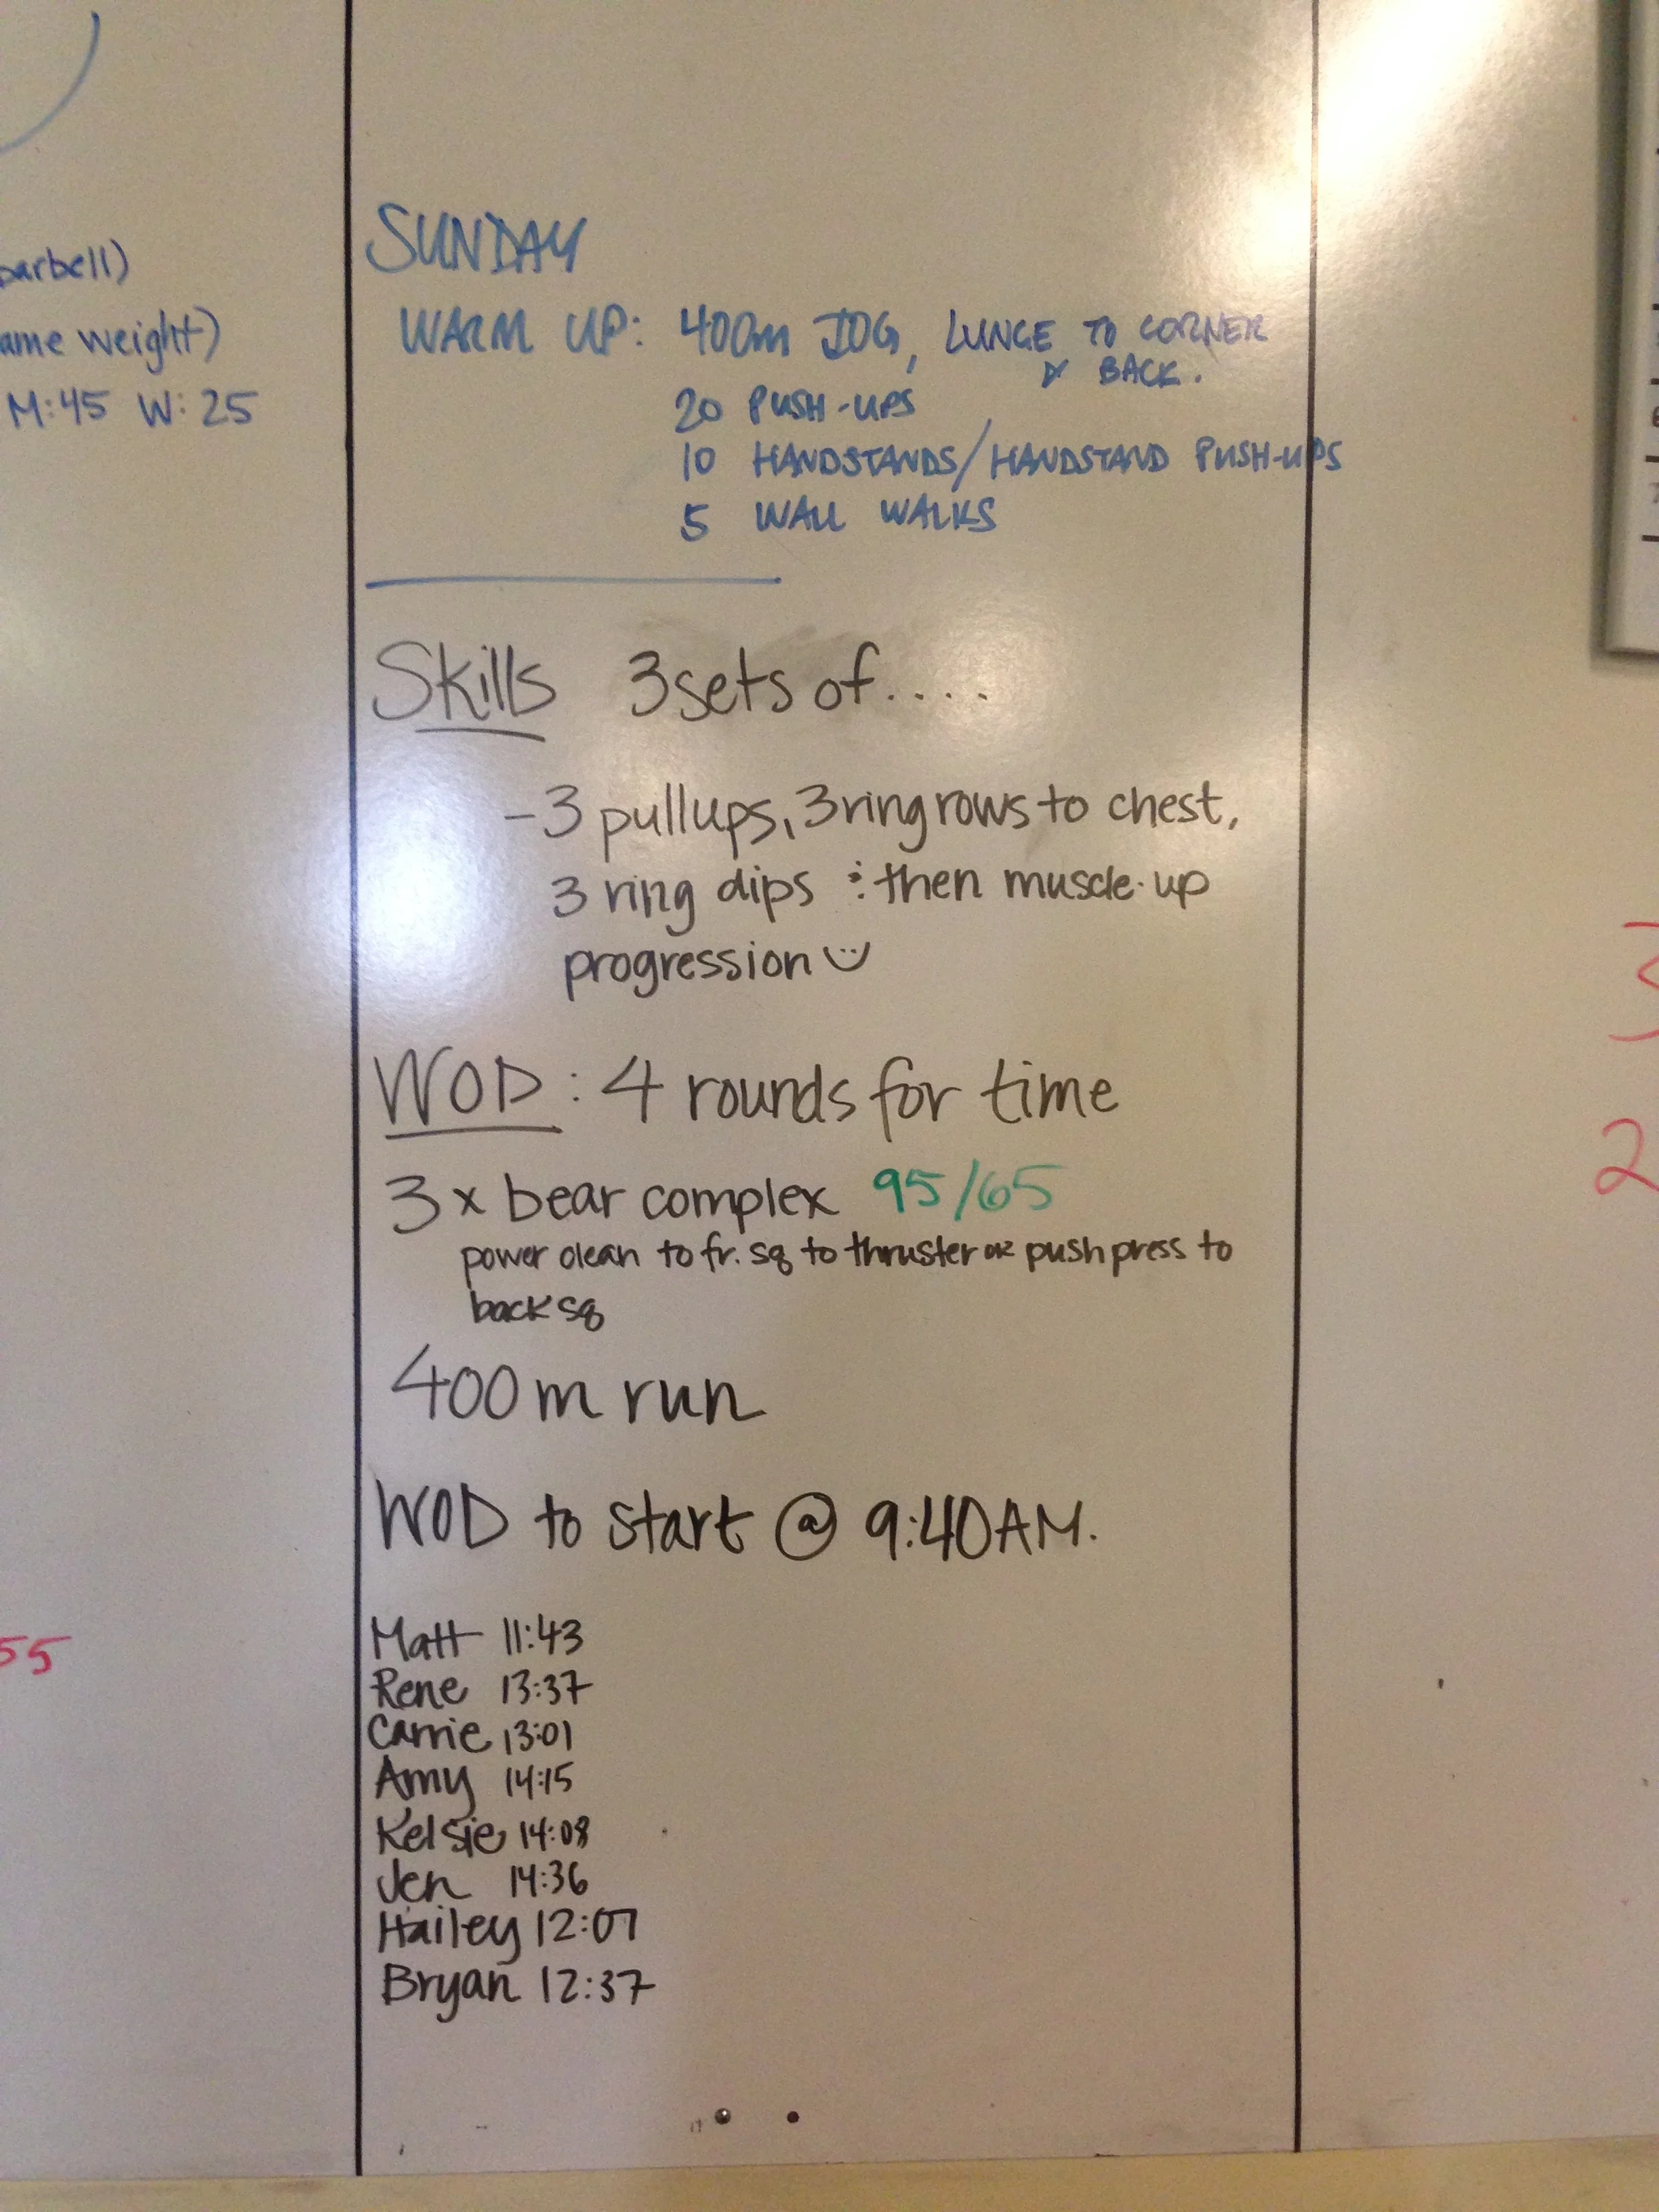 parbell)
ame weight)
M:45 W: 25
55
SUNDAY
WARM UP: 400m JOG, LUNGE TO CORNER
& BACK.
20 PUSH-UPS
10 HANDSTANDS/HANDSTAND PUSH-UPS
5 WALL WALKS
Skills 3 sets of....
- 3 pullups, 3 ring rows to chest,
3 ring dips & then muscle-up
progression
WOD: 4 rounds for time
3 x bear complex 95/65
power clean to fr. sq to thruster OR push press to
back sq
400 m run
WOD to start @ 9:40AM.
Matt 11:43
Rene 13:37
Carrie 13:01
Amy 14:15
Kelsie 14:08
Jen 14:36
Hailey 12:07
Bryan 12:37
3
2